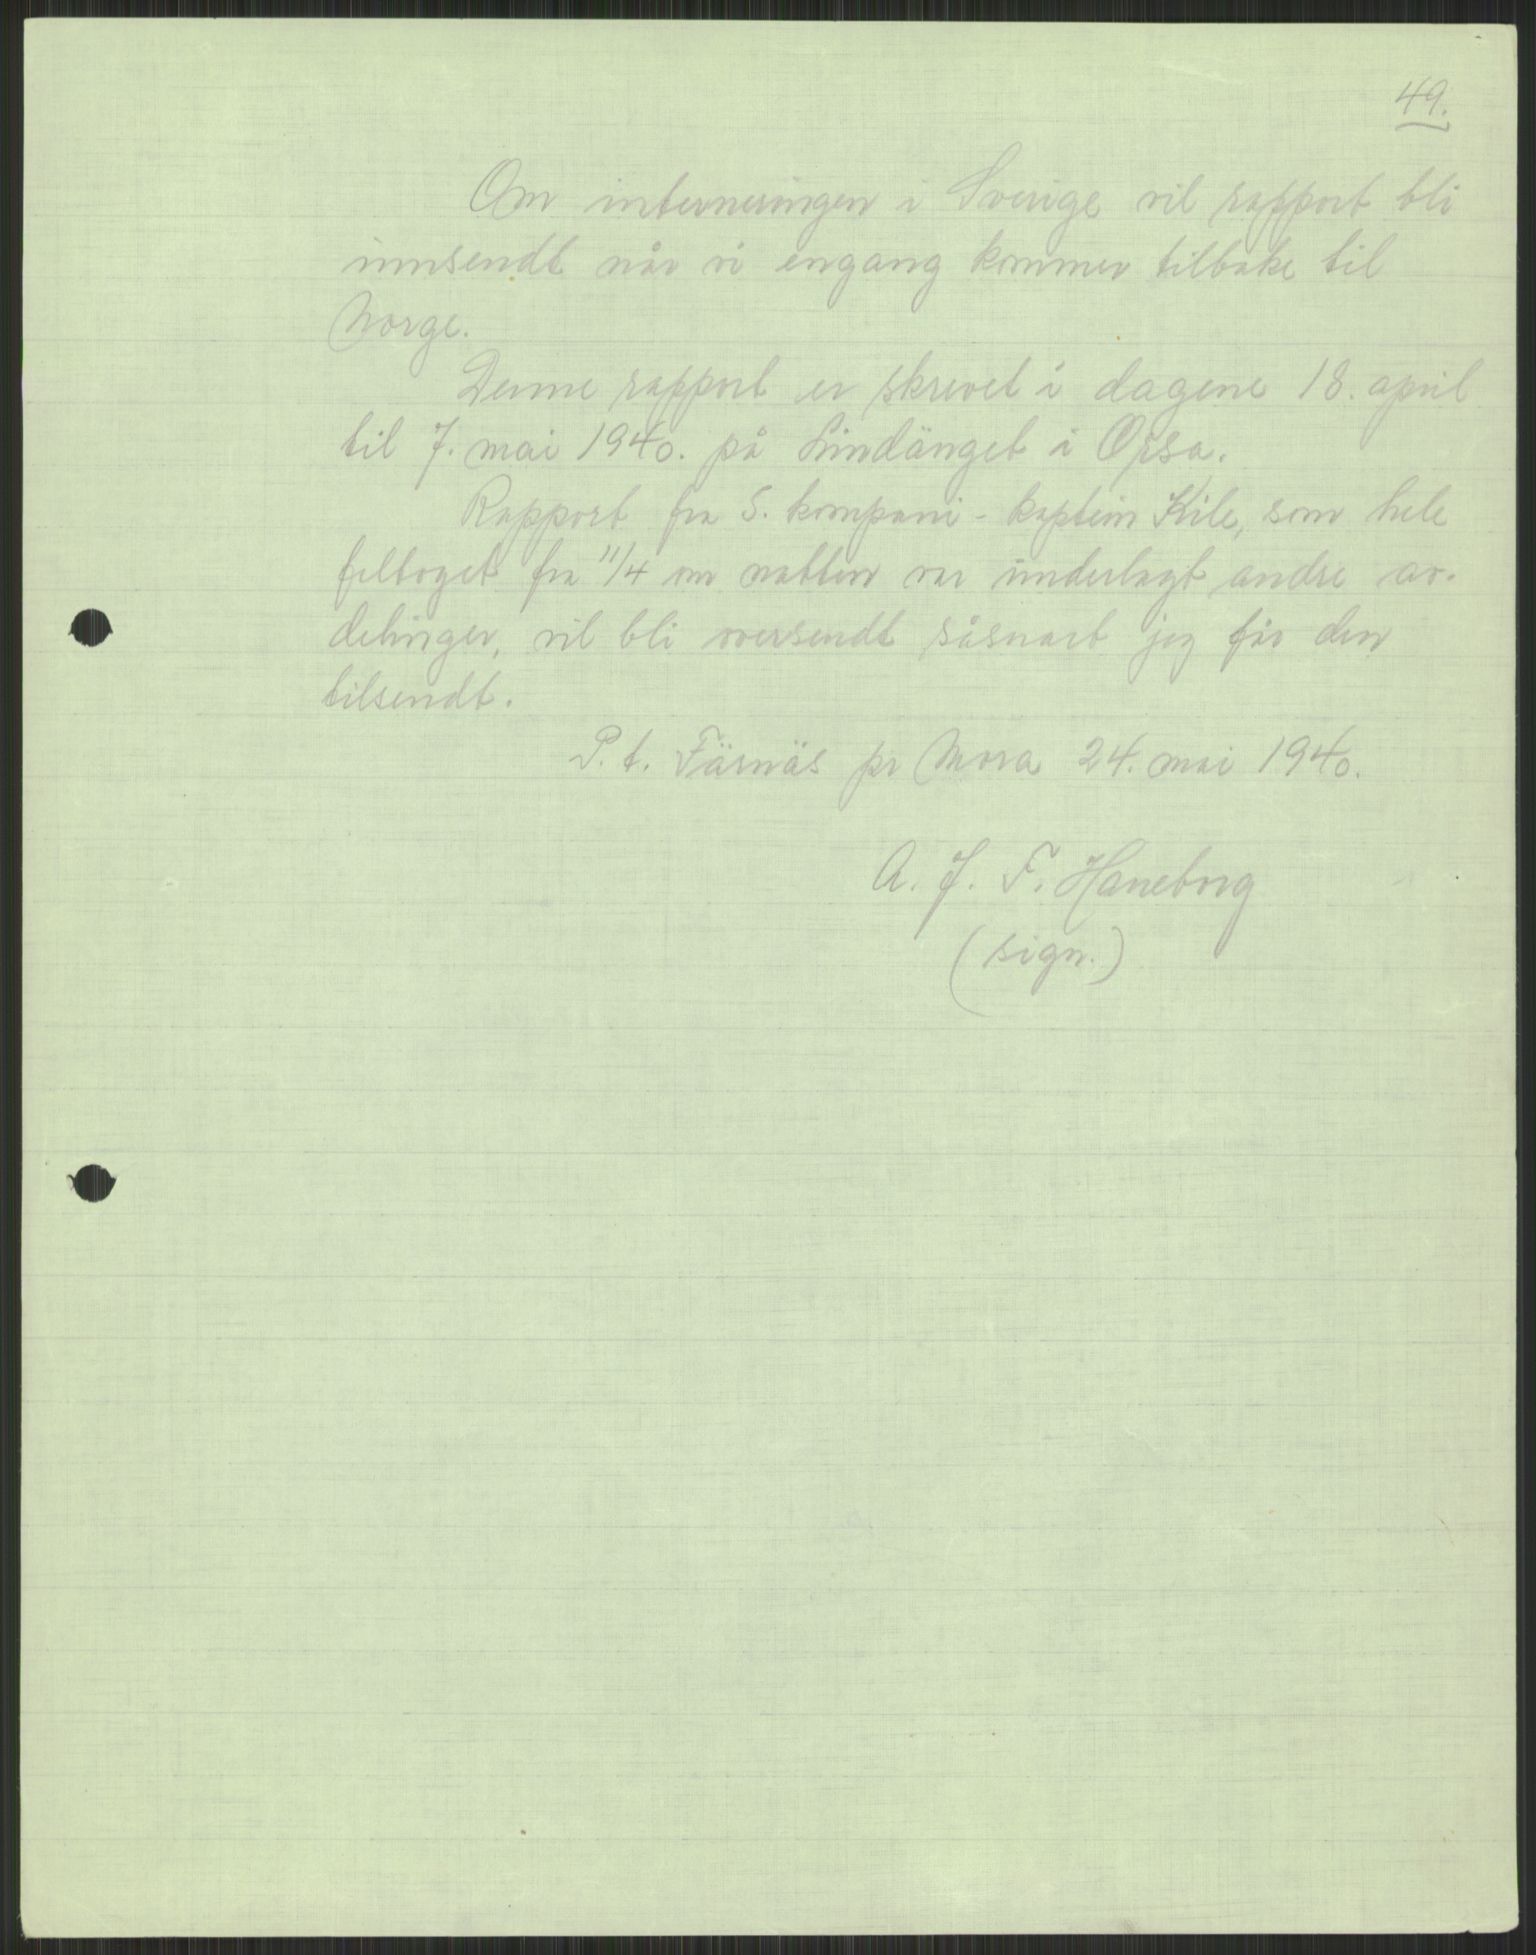 49.
Om interneringen i Sverige vil rapport bli
innsendt når vi engang kommer tilbake til
Norge.
Denne rapport er skrevet i dagene 18. april
til 7. mai 1940. på Lindänget i Orsa.
Rapport fra 5. kompani - kaptein Kile, som hele
feltoget fra 11/4 om natten var underlagt andre av-
delinger, vil bli oversendt såsnart jeg får den
tilsendt.
P. t. Färnäs pr Mora 24. mai 1940.
A. J. F. Haneborg
(sign.)